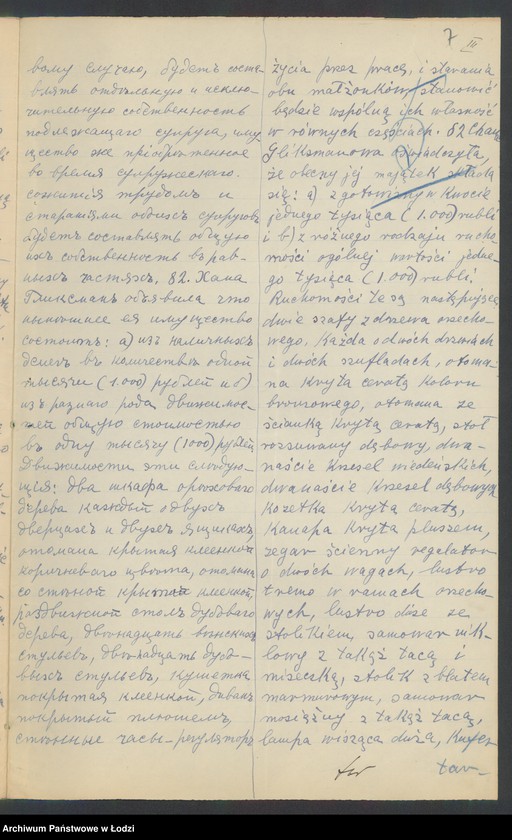 7 III
вому случаю, будетъ соста-
влять отдѣльную и исклю-
чительную собственность
подлежащаго супруга, иму
щество же пріобрѣтенное
во время супружескаго
сожитія трудомъ и
стараніями обоихъ супруговъ
будетъ составлять общую
ихъ собственность въ рав-
ныхъ частяхъ. 82. Хана
Гликсманъ объявила что
нынѣшнее ея имущество
состоитъ: а) изъ наличныхъ
денегъ въ количествѣ одной
тысячи (1.000) рублей и б)
изъ разнаго рода движимос-
тей общую стоимостью
въ одну тысячу (1000) рублей
Движимости эти слѣдую-
щія: два шкафа орѣховаго
дерева каждый о двухъ
дверцахъ и двухъ ящикахъ,
отомана крытая клеенкой
коричневаго цвѣта, отомана
со стѣнкой крытая клеенкой,
раздвижной столъ дубоваго
дерева, двѣнадцать вѣнскихъ
стульевъ, двѣнадцать дубо-
выхъ стульевъ, кушетка
покрытая клеенкой, диванъ
покрытый плюшемъ,
стѣнные часы-регуляторъ
życia przez pracę, i starania
obu małżonków, stanowić
będzie wspólną ich własność
w równych częściach. 82. Chana
Gliksmanowa oświadczyła,
że obecny jej majątek składa
się: a) z gotowizny w kwocie
jednego tysiąca (1.000) rubli
i b) z różnego rodzaju rucho-
mości ogólnej wartości jedne-
go tysiąca (1.000) rubli.
Ruchomości te są następujące
dwie szafy z drzewa orzecho-
wego. Każda o dwóch drzwiach
i dwóch szufladach, otoma-
na kryta ceratą koloru
bronzowego, otomana ze
ścianką krytą ceratą, stół
rozsuwany dębowy, dwa-
naście krzeseł wiedeńskich,
dwanaście krzeseł dębowych
kozetka kryta ceratą,
kanapa kryta pluszem,
zegar ścienny regelator
o dwóch wagach, lustro
tremo w ramach orzecho-
wych, lustro duże ze
stolikiem, samowar nik-
lowy z takąż tacą i
miseczką, stolik z blatem
marmurowym, samowar
mosiężny z takąż tacą,
lampa wisząca duża, kufer
tav-
Archiwum Państwowe w Łodzi